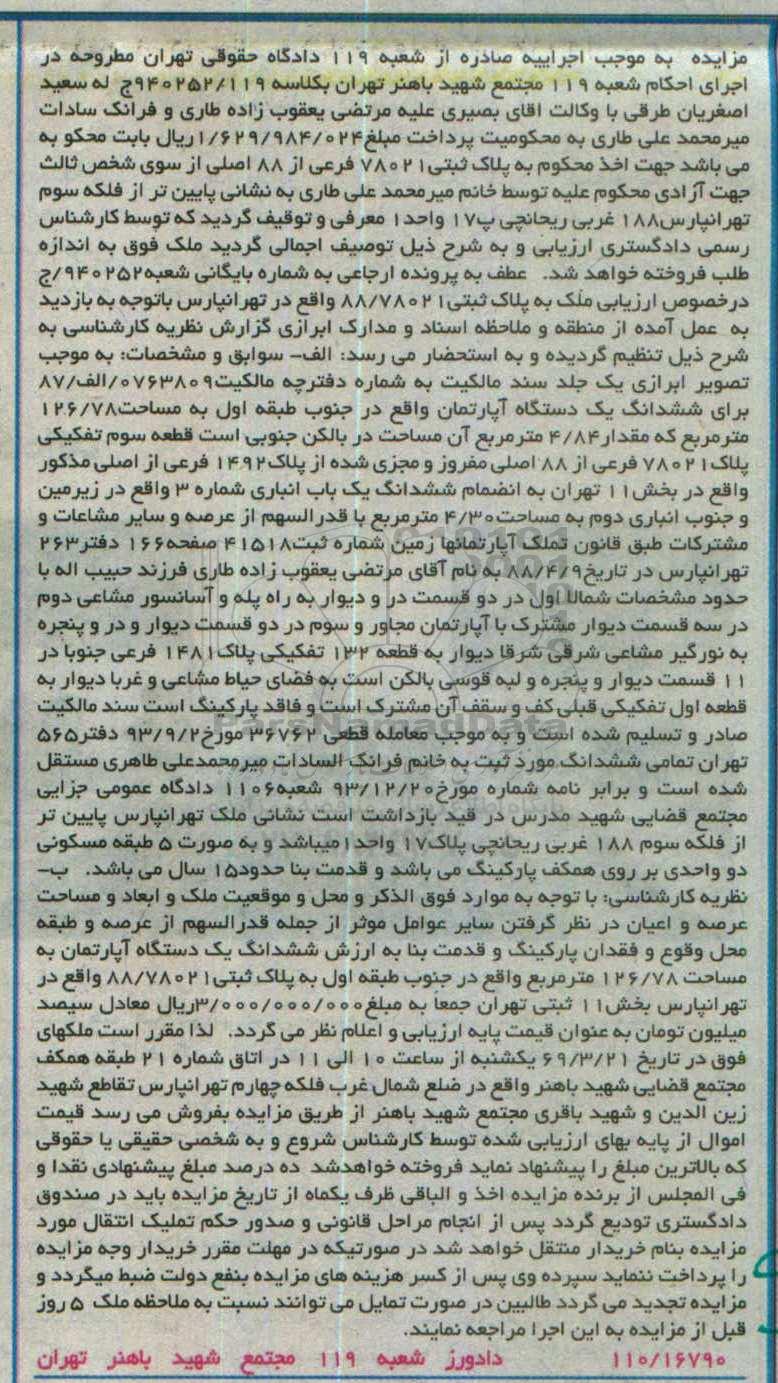 مزایده به موجب اجراییه صادره از شعبه ۱۱۹ دادگاه حقوقی تهران مطروحه در
اجرای احکام شعبه ۱۱۹ مجتمع شهید باهنر تهران بکلاسه ۹۴۰۲۵۲/۱۱۹ج له سعید
اصغریان طرقی با وکالت اقای بصیری علیه مرتضی یعقوب زاده طاری و فرانک سادات
میرمحمد علی طاری به محکومیت پرداخت مبلغ۱/۶۲۹/۹۸۴/۰۲۴ریال بابت محکو به
می باشد جهت اخذ محکوم به پلاک ثبتی۷۸۰۲۱ فرعی از ۸۸ اصلی از سوی شخص ثالث
جهت آزادی محکوم علیه توسط خانم میرمحمد علی طاری به نشانی پایین تر از فلکه سوم
تهرانپارس۱۸۸ غربی ریحانچی پ۱۷ واحد۱ معرفی و توقیف گردید که توسط کارشناس
رسمی دادگستری ارزیابی و به شرح ذیل توصیف اجمالی گردید ملک فوق به اندازه
طلب فروخته خواهد شد. عطف به پرونده ارجاعی به شماره بایگانی شعبه۹۴۰۲۵۲/ج
درخصوص ارزیابی ملک به پلاک ثبتی۸۸/۷۸۰۲۱ واقع در تهرانپارس باتوجه به بازدید
به عمل آمده از منطقه و ملاحظه اسناد و مدارک ابرازی گزارش نظریه کارشناسی به
شرح ذیل تنظیم گردیده و به استحضار می رسد: الف- سوابق و مشخصات: به موجب
تصویر ابرازی یک جلد سند مالکیت به شماره دفترچه مالکیت۰۷۶۳۸۰۹/الف/۸۷
برای ششدانگ یک دستگاه آپارتمان واقع در جنوب طبقه اول به مساحت۱۲۶/۷۸
مترمربع که مقدار۴/۸۴ مترمربع آن مساحت در بالکن جنوبی است قطعه سوم تفکیکی
پلاک۷۸۰۲۱ فرعی از ۸۸ اصلی مفروز و مجزی شده از پلاک۱۴۹۲ فرعی از اصلی مذکور
واقع در بخش۱۱ تهران به انضمام ششدانگ یک باب انباری شماره ۳ واقع در زیرمین
و جنوب انباری دوم به مساحت۴/۳۰ مترمربع با قدرالسهم از عرصه و سایر مشاعات و
مشترکات طبق قانون تملک آپارتمانها زمین شماره ثبت۴۱۵۱۸ صفحه۱۶۶ دفتر۲۶۳
تهرانپارس در تاریخ۸۸/۴/۹ به نام آقای مرتضی یعقوب زاده طاری فرزند حبیب اله با
حدود مشخصات شمالا اول در دو قسمت در و دیوار به راه پله و آسانسور مشاعی دوم
در سه قسمت دیوار مشترک با آپارتمان مجاور و سوم در دو قسمت دیوار و در و پنجره
به نورگیر مشاعی شرقی شرقا دیوار به قطعه ۱۳۲ تفکیکی پلاک۱۴۸۱ فرعی جنوبا در
۱۱ قسمت دیوار و پنجره و لبه قوسی بالکن است به فضای حیاط مشاعی و غربا دیوار به
قطعه اول تفکیکی قبلی کف و سقف آن مشترک است و فاقد پارکینگ است سند مالکیت
صادر و تسلیم شده است و به موجب معامله قطعی ۳۶۷۶۲ مورخ۹۳/۹/۲ دفتر۵۶۵
تهران تمامی ششدانگ مورد ثبت به خانم فرانک السادات میرمحمدعلی طاهری مستقل
شده است و برابر نامه شماره مورخ۹۳/۱۲/۲۰ شعبه۱۱۰۶ دادگاه عمومی جزایی
مجتمع قضایی شهید مدرس در قید بازداشت است نشانی ملک تهرانپارس پایین تر
از فلکه سوم ۱۸۸ غربی ریحانچی پلاک۱۷ واحد۱میباشد و به صورت ۵ طبقه مسکونی
دو واحدی بر روی همکف پارکینگ می باشد و قدمت بنا حدود۱۵ سال می باشد. ب-
نظریه کارشناسی: با توجه به موارد فوق الذکر و محل و موقعیت ملک و ابعاد و مساحت
عرصه و اعیان در نظر گرفتن سایر عوامل موثر از جمله قدرالسهم از عرصه و طبقه
محل وقوع و فقدان پارکینگ و قدمت بنا به ارزش ششدانگ یک دستگاه آپارتمان به
مساحت ۱۲۶/۷۸ مترمربع واقع در جنوب طبقه اول به پلاک ثبتی۸۸/۷۸۰۲۱ واقع در
تهرانپارس بخش۱۱ ثبتی تهران جمعا به مبلغ۳/۰۰۰/۰۰۰/۰۰۰ریال معادل سیصد
میلیون تومان به عنوان قیمت پایه ارزیابی و اعلام نظر می گردد. لذا مقرر است ملکهای
فوق در تاریخ ۶۹/۳/۲۱ یکشنبه از ساعت ۱۰ الی ۱۱ در اتاق شماره ۲۱ طبقه همکف
مجتمع قضایی شهید باهنر واقع در ضلع شمال غرب فلکه چهارم تهرانپارس تقاطع شهید
زین الدین و شهید باقری مجتمع شهید باهنر از طریق مزایده بفروش می رسد قیمت
اموال از پایه بهای ارزیابی شده توسط کارشناس شروع و به شخصی حقیقی یا حقوقی
که بالاترین مبلغ را پیشنهاد نماید فروخته خواهدشد ده درصد مبلغ پیشنهادی نقدا و
فی المجلس از برنده مزایده اخذ و الباقی ظرف یکماه از تاریخ مزایده باید در صندوق
دادگستری تودیع گردد پس از انجام مراحل قانونی و صدور حکم تملیک انتقال مورد
مزایده بنام خریدار منتقل خواهد شد در صورتیکه در مهلت مقرر خریدار وجه مزایده
را پرداخت ننماید سپرده وی پس از کسر هزینه های مزایده بنفع دولت ضبط میگردد و
مزایده تجدید می گردد طالبین در صورت تمایل می توانند نسبت به ملاحظه ملک ۵ روز
قبل از مزایده به این اجرا مراجعه نمایند.
۱۱۰/۱۶۷۹۰ دادورز شعبه ۱۱۹ مجتمع شهید باهنر تهران
ParsNamadData